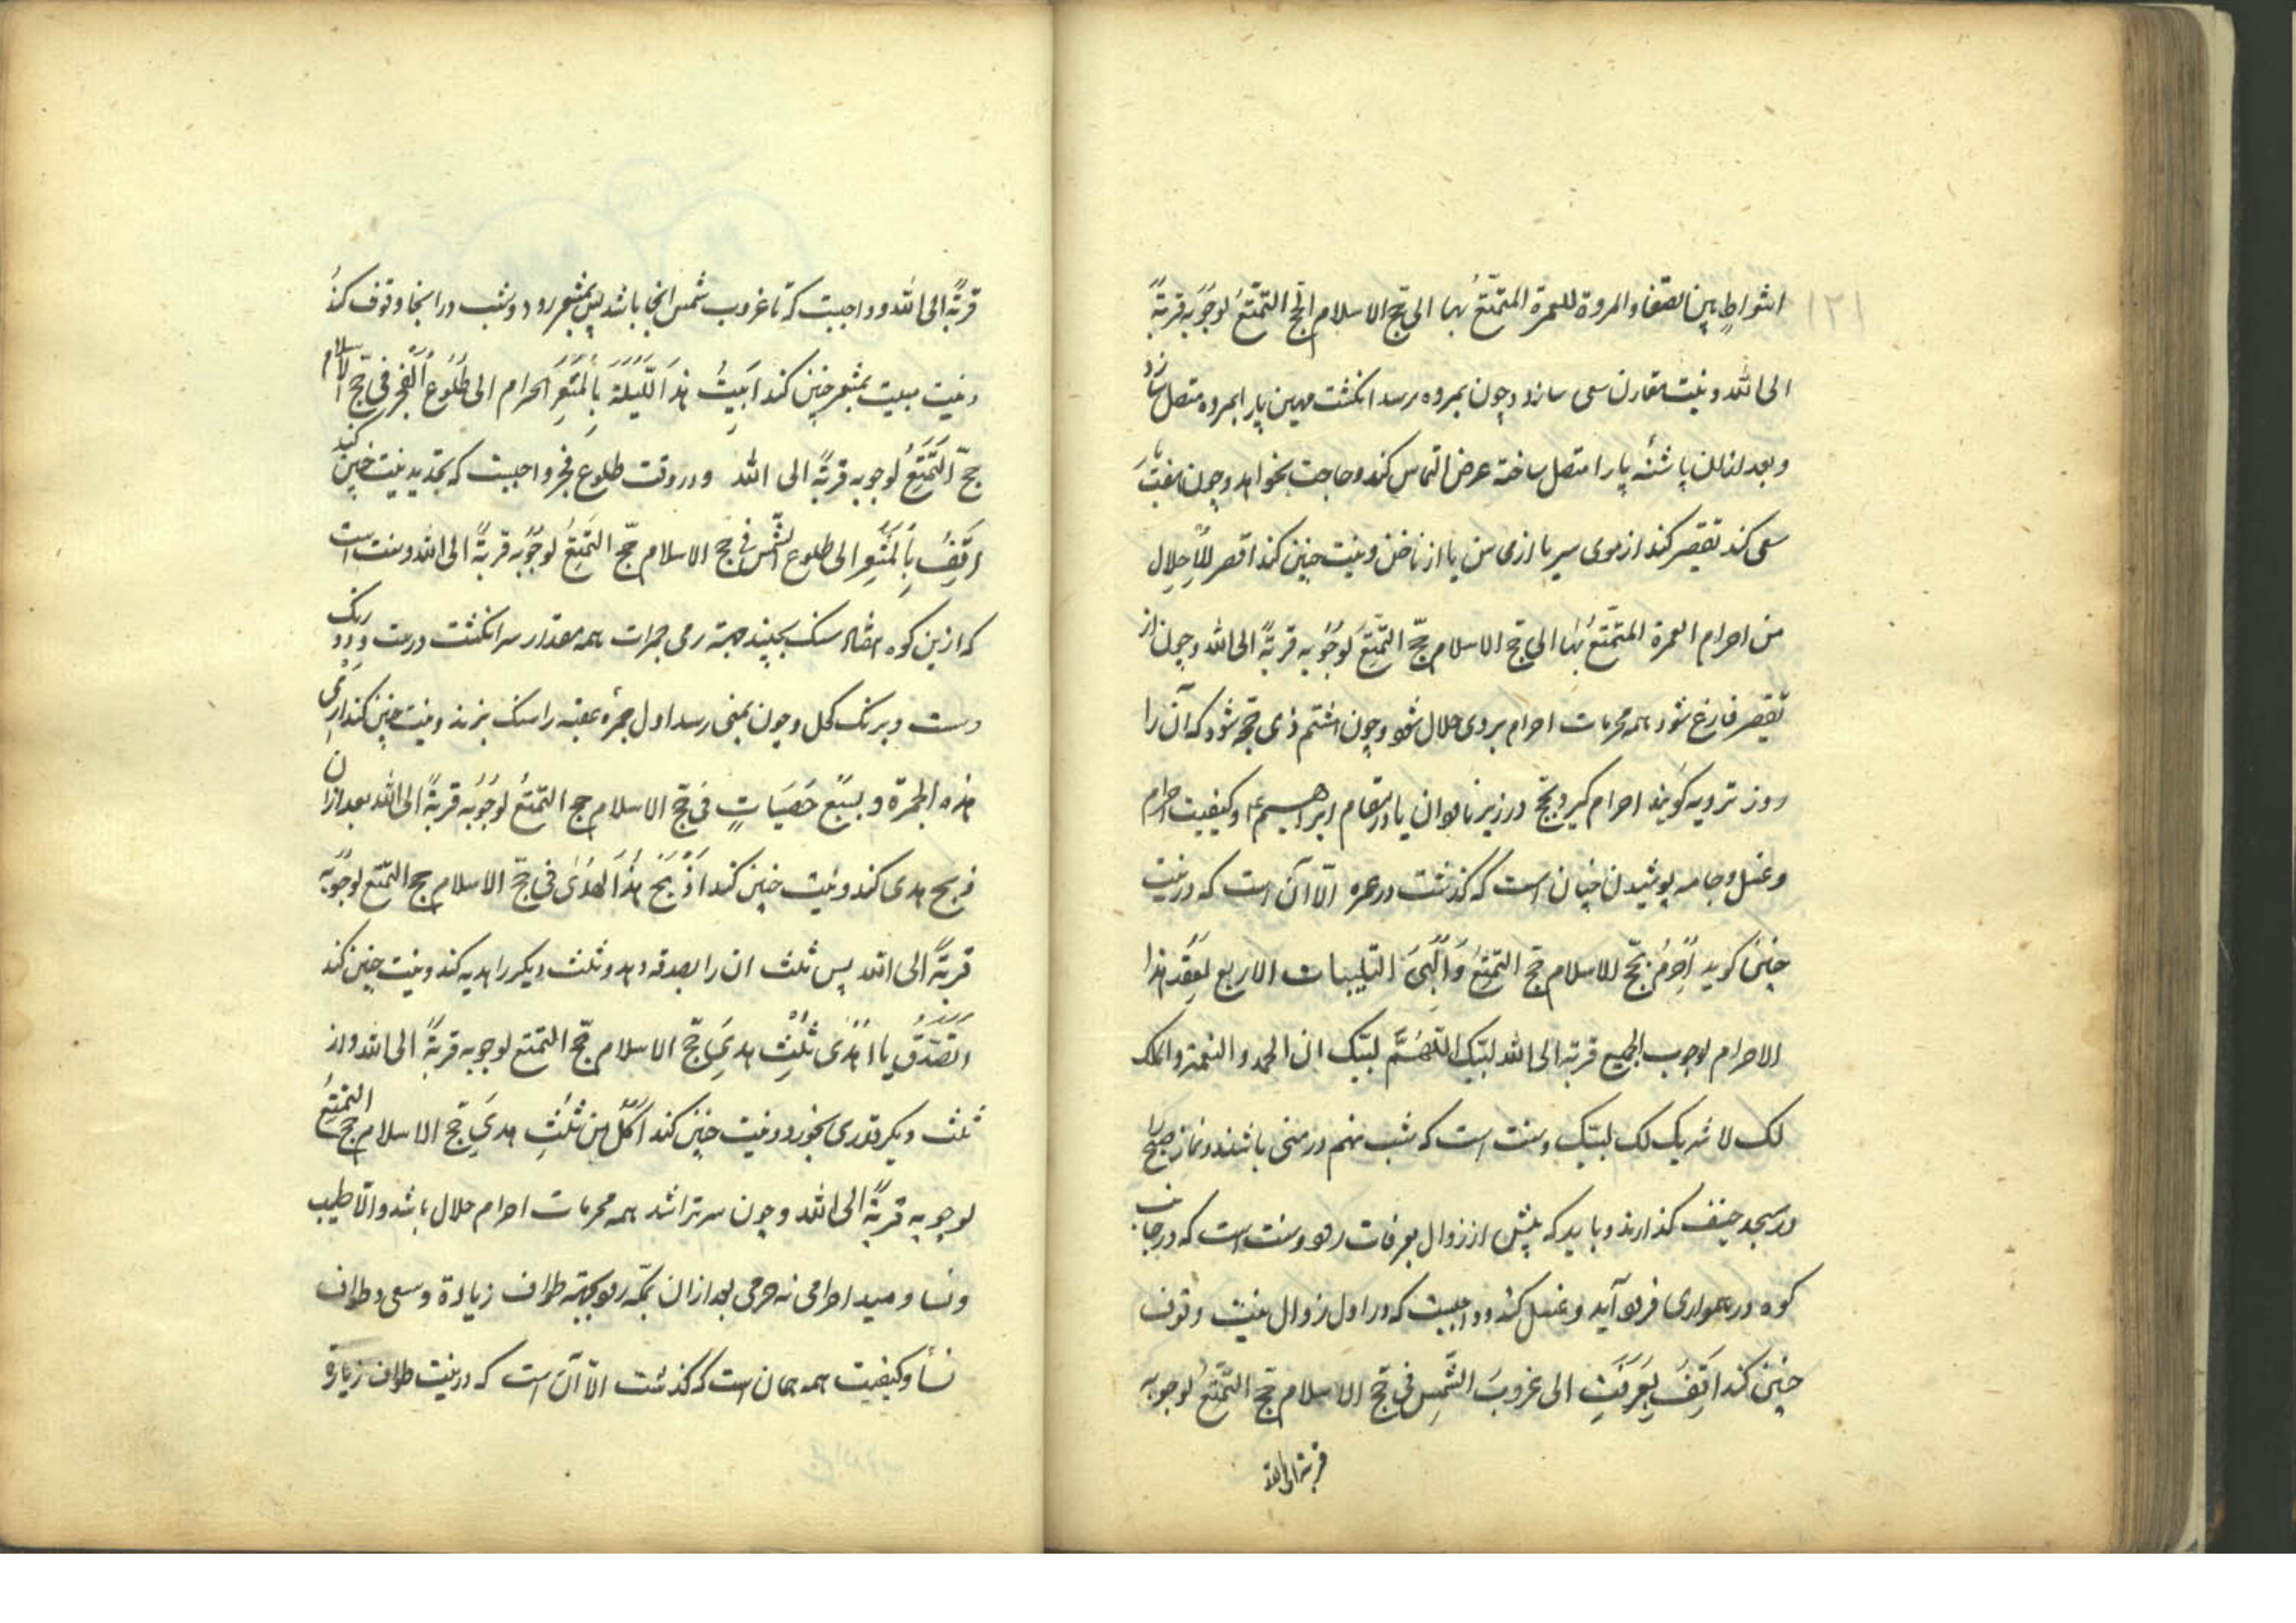 اشواطٍ بین الصفا و المروة للعمرة المتمتعُ بها الی حج الاسلام حج التمتعُ لوجوبه قربةً
الی الله و نیت مقارن سعی سازد و چون بمروه رسد انکشت مهین پا را بمروه متصل سازد
و بعد از ان پاشنه پا را متصل ساخته عرض التماس کند و حاجت بخواهد و چون هفت بار
سعی کند تقصیر کند از موی سر یا از ناخن و نیت چنین کند اقصر للاحلال
من احرام العمرة المتمتعُ بها الی حج الاسلام حج التمتعُ لوجوبه قربةً الی الله و چون از
تقصیر فارغ شود همه محرمات احرام بر وی حلال شود و چون هشتم ذی حجه شود که آن را
روز ترویه کویند احرام کیرد بحج در زیر ناودان یا در مقام ابراهیم ع و کیفیت احرام
و غسل و جامه پوشیدن چنان است که کذشت در عمره الّا آن است که در نیت
چنین کوید اُحرِمُ بحج الاسلام حج التمتعُ و اُلَبّی التلبیات الاربع لعقد هذا
الاحرام لوجوب الجمیع قربة الی الله لبیک اللّهُمَّ لبیک ان الحمد و النعمة و الملک
لک لا شریک لک لبیک و سنت است که شب نهم در منی باشند و نماز صبح را
در مسجد خیف کذارند و باید که پیش از زوال بعرفات رود و سنت است که در جانب
کوه در همواری فرود آید و غسل کند و واجبست که در اول زوال نیت وقوف
چنین کند اَقِفُ بِعَرَفَتِ الی غروبَ الشمسِ فی حج الاسلام حج التمتعُ لوجوبه
قربة الی الله
قربةً الی الله و واجبست که تا غروب شمس انجا باشد پس بمشعر رود و شب در انجا وقوف کند
و نیت مبیت بمشعر چنین کند اَبیتُ هذه اللّیلة بِالمشعَرِ الحرام الی طُلُوع الفجر فی حج الاسلام
حج التمتعُ لوجوبه قربةً الی الله و در وقت طلوع فجر واجبست که تجدید نیت چنین کند
اَقِفُ بِالمشعَرِ الی طلوع الشمس فی حج الاسلام حج التمتعُ لوجوبه قربةً الی الله و سنت است
که ازین کوه سنک بچیند جهة رمی جمرات همه مقدار سر انکشت درست و دو رنک
دست و برنک کحل و چون بمنی رسد اول جمره عقبه را سنک بزند و نیت چنین کند ارمی
هذه الجمرة و بسبع حَصَیَاتٍ فی حج الاسلام حج التمتعُ لوجوبه قربةً الی الله بعد از ان
ذبح هدی کند و نیت چنین کند اَذبَحُ هذا الهدی فی حج الاسلام حج التمتع لوجوبه
قربةً الی الله پس ثلث ان را بصدقه دهد و ثلث دیکر را هدیه کند و نیت چنین کند
اتصدّق یا اهدی ثلث هدیِ حج الاسلام حج التمتع لوجوبه قربةً الی الله و از
ثلث دیکر قدری بخورد و نیت چنین کند اکُلُ من ثُلثِ هدیِ حج الاسلام حج التمتعُ
لوجوبه قربةً الی الله و چون سر تراشد همه محرمات احرام حلال باشد و الّا طیب
و نسا و صید احرامی نه حرمی بعد از ان بمکه رود بجهة طواف زیادة و سعی و طواف
نسأ و کیفیت همه همان است که کذشت الّا آن است که در نیت طواف زیارة